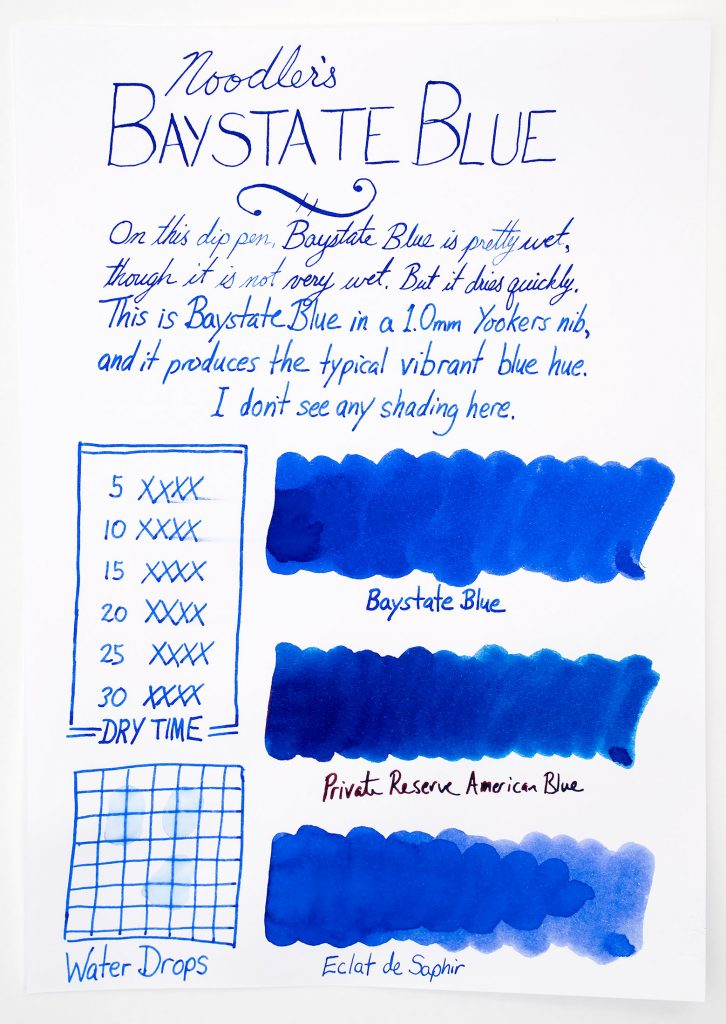 Noodler's
BAYSTATE BLUE
On this dip pen, Baystate Blue is pretty wet,
though it is not very wet. But it dries quickly.
This is Baystate Blue in a 1.0mm Yookers nib,
and it produces the typical vibrant blue hue.
I don't see any shading here.
5 XXXX
10 XXXX
15 XXXX
20 XXXX
25 XXXX
30 XXXX
DRY TIME
Baystate Blue
Private Reserve American Blue
Water Drops
Eclat de Saphir